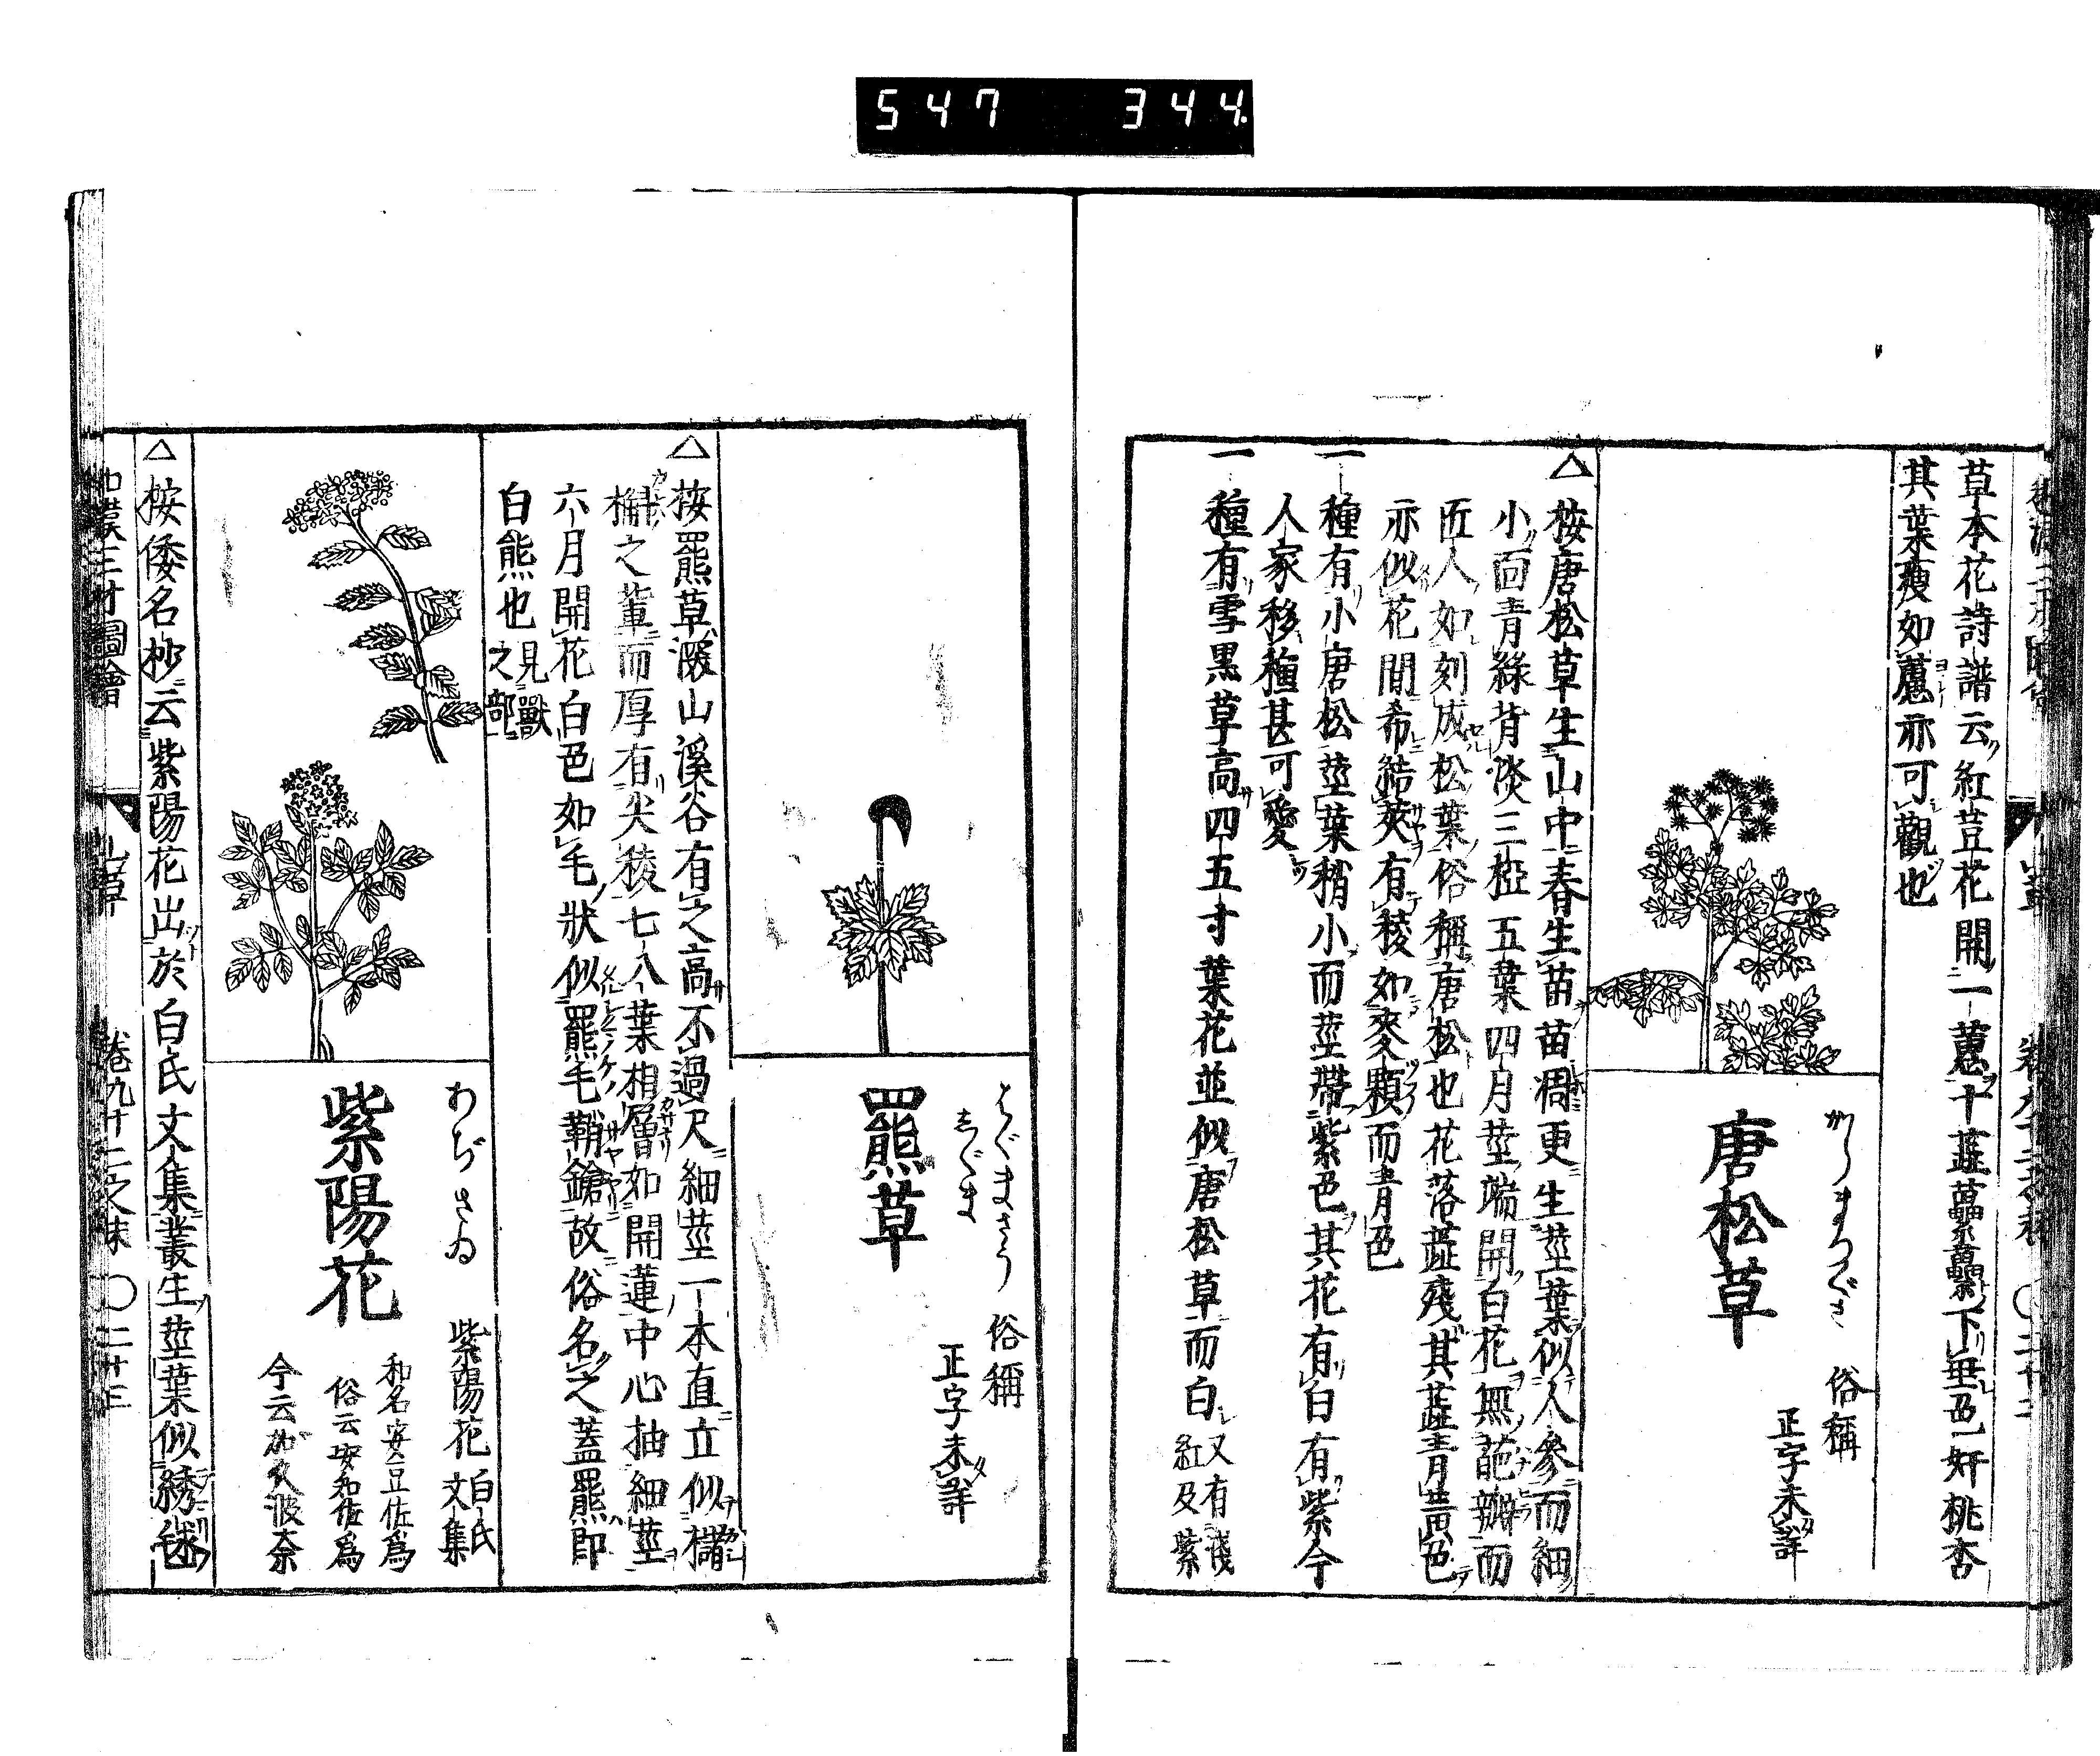 547 344.
草本花詩譜云紅荳花開一䕺十蕋纍纍下垂色妍桃杏
其葉瘦如蘆亦可觀也
からまつぐさ
俗稱
正字未詳
唐松草
△按唐松草生山中春生苗苗凋更生莖葉似人參而細
小面青綠背淡三椏五葉四月莖端開白花無葩瓣而
匠人如刻成松葉俗稱唐松也花落蕋殘其蕋青黃色
亦似花間希結莢有稜如麥顆而青色
一種有小唐松莖葉稍小而莖帶紫色其花有白有紫今
人家移種甚可愛
一種有雪黑草高四五寸葉花並似唐松草而白又有淺
紅及紫
はぐまさう
しぐま
俗稱
正字未詳
䍠草
△按䍠草深山溪谷有之高不過尺細莖一本直立似櫧
檞之葉而厚有尖稜七八葉相層如開蓮中心抽細莖
六月開花白色如毛狀似䍠毛鞘鎗故俗名之蓋䍠即
白熊也見獸
之部
あぢさゐ
紫陽花
紫陽花白氏
文集
和名安豆佐爲
俗云安知佐爲
今云加久波奈
△按倭名抄云紫陽花出於白氏文集叢生莖葉似綉毬
和漢三才圖會
山草
卷九十二之末
〇二十三